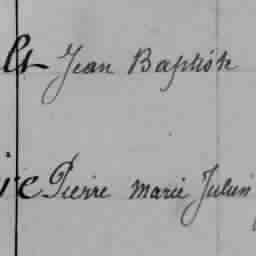 Jean Baptiste
Pierre Marie Julien